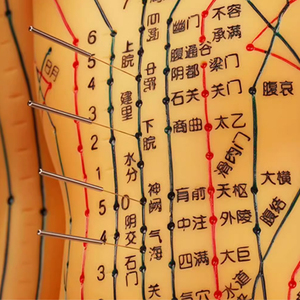 6
5
4
3
2
1
5
4
3
上脘
中脘
建里
下脘
水分
神阙
阴交
气海
石门
关
幽门
腹通谷
阴都
石关
商曲
肓俞
中注
四满
气穴
不容
承满
梁门
关门
太乙
滑肉门
天枢
外陵
大巨
水道
腹哀
大横
腹结